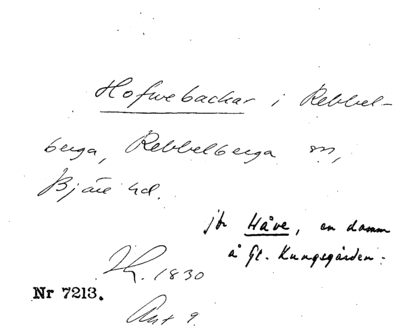 Hofwebackar i Rebbel-
berga, Rebbelberga sn,
Bjäre hd.
jfr Håve, en damm
å Gl. Kungsgården.
1830
Nr 7213.
Avt 9.